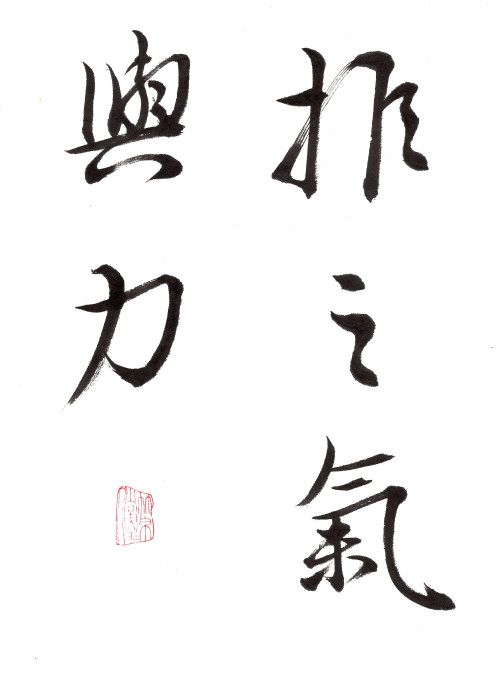 推之氣
與力